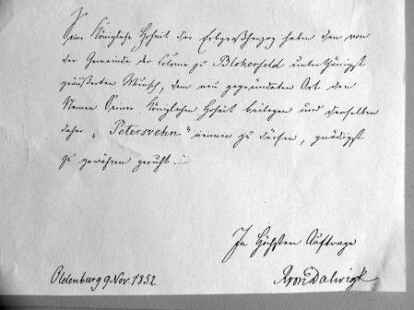 Seine Königliche Hoheit der Erbgroßherzog haben den von
der Gemeinde der Colonie zu Blokerfeld unterthänigst
geäußerten Wunsch, dem neu gegründeten Ort den
Namen Seiner Königlichen Hoheit beilegen und denselben
daher „Petersvehn“ nennen zu dürfen, gnädigst
zu gewähren geruht.
Im Höchsten Auftrage
Oldenburg 9 Nov. 1852
von Dalwigk